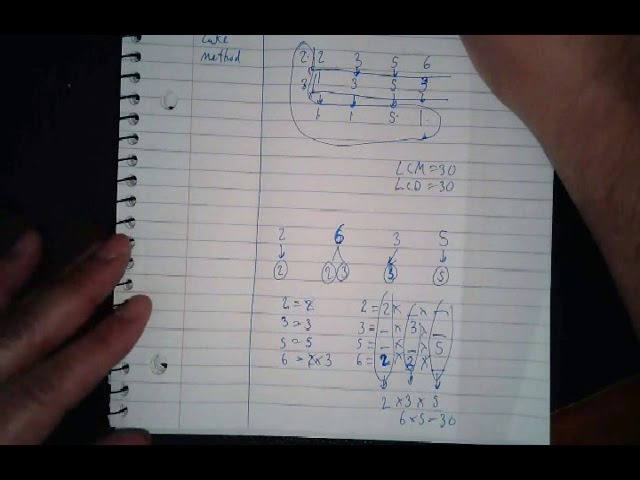 Cake
method
2 | 2 3 5 6
3 | 1 3 5 3
1 1 5 1
LCM = 30
LCD = 30
2 6 3 5
2 2 3 3 5
2 = 2 2 = 2 × _ × _
3 = 3 3 = _ × 3 × _
5 = 5 5 = _ × _ × 5
6 = 2 × 3 6 = 2 × 2 ×
2 × 3 × 5
6 × 5 = 30